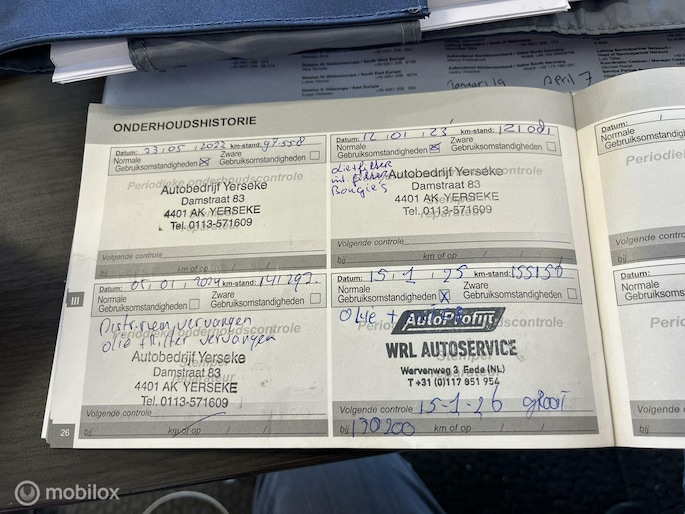 Januari 19
April 7
ONDERHOUDSHISTORIE
Datum: 23 05 2022 km-stand: 97.558
Normale
Gebruiksomstandigheden
Zware
Gebruiksomstandigheden
Periodieke onderhoudscontrole
Autobedrijf Yerseke
Damstraat 83
4401 AK YERSEKE
Tel. 0113-571609
Volgende controle
bij km of op / /
Datum: 12 01 23 km-stand: 121081
Normale
Gebruiksomstandigheden
Zware
Gebruiksomstandigheden
Bougie's
Autobedrijf Yerseke
Damstraat 83
4401 AK YERSEKE
Tel. 0113-571609
Volgende controle
bij km of op / /
III
Datum: 05 01 2024 km-stand: 141297
Normale
Gebruiksomstandigheden
Zware
Gebruiksomstandigheden
Distr riem vervangen
Periodieke onderhoudscontrole
olie + filter vervangen
Stempel
Autobedrijf Yerseke
Damstraat 83
4401 AK YERSEKE
Tel. 0113-571609
Volgende controle
bij km of op / /
Datum: 15 1 25 km-stand: 155158
Normale
Gebruiksomstandigheden
Zware
Gebruiksomstandigheden
Olye +
AutoProfijt
WRL AUTOSERVICE
Wervenweg 3 Eede (NL)
T +31 (0)117 851 954
Volgende controle 15-1-26 groot
bij 170200 km of op / /
26
Datum:
Normale
Gebruiksomstandigheden
Volgende controle
bij
Datum:
Normale
Gebruiksomstandigheden
Volgende controle
bij
mobilox